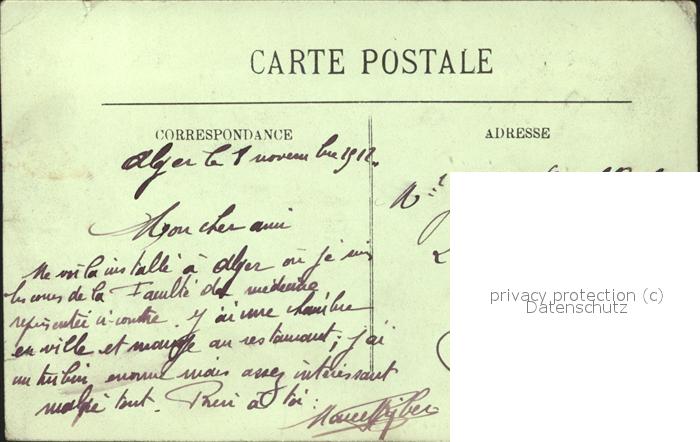 CARTE POSTALE
CORRESPONDANCE
ADRESSE
Alger le 1 novembre 1912.
Mon cher ami
Me voilà installé à Alger où je suis
les cours de la Faculté de médecine
représentée ci-contre. J'ai une chambre
en ville et mange au restaurant; j'ai
un turbin enorme mais assez intéressant
malgré tout. Rien à toi.
Marcel
privacy protection (c)
Datenschutz